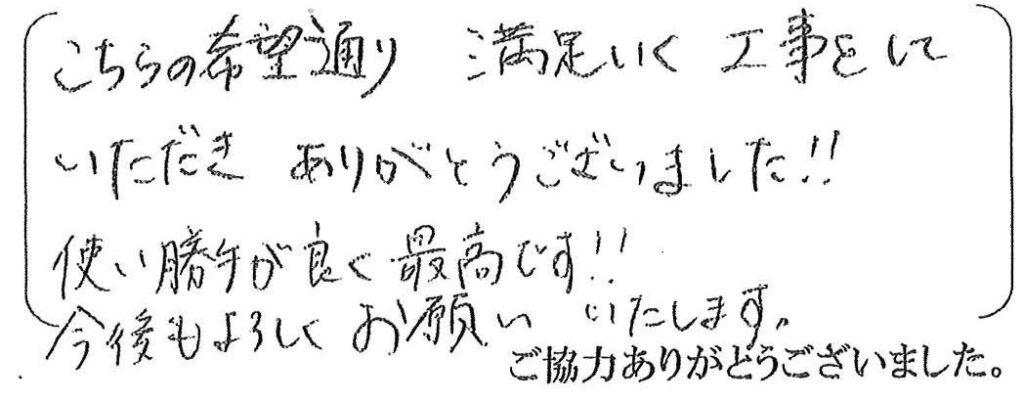 こちらの希望通り 満足いく 工事をして
いただき ありがとうございました!!
使い勝手が良く最高です!!
今後もよろしくお願い いたします。
ご協力ありがとうございました。